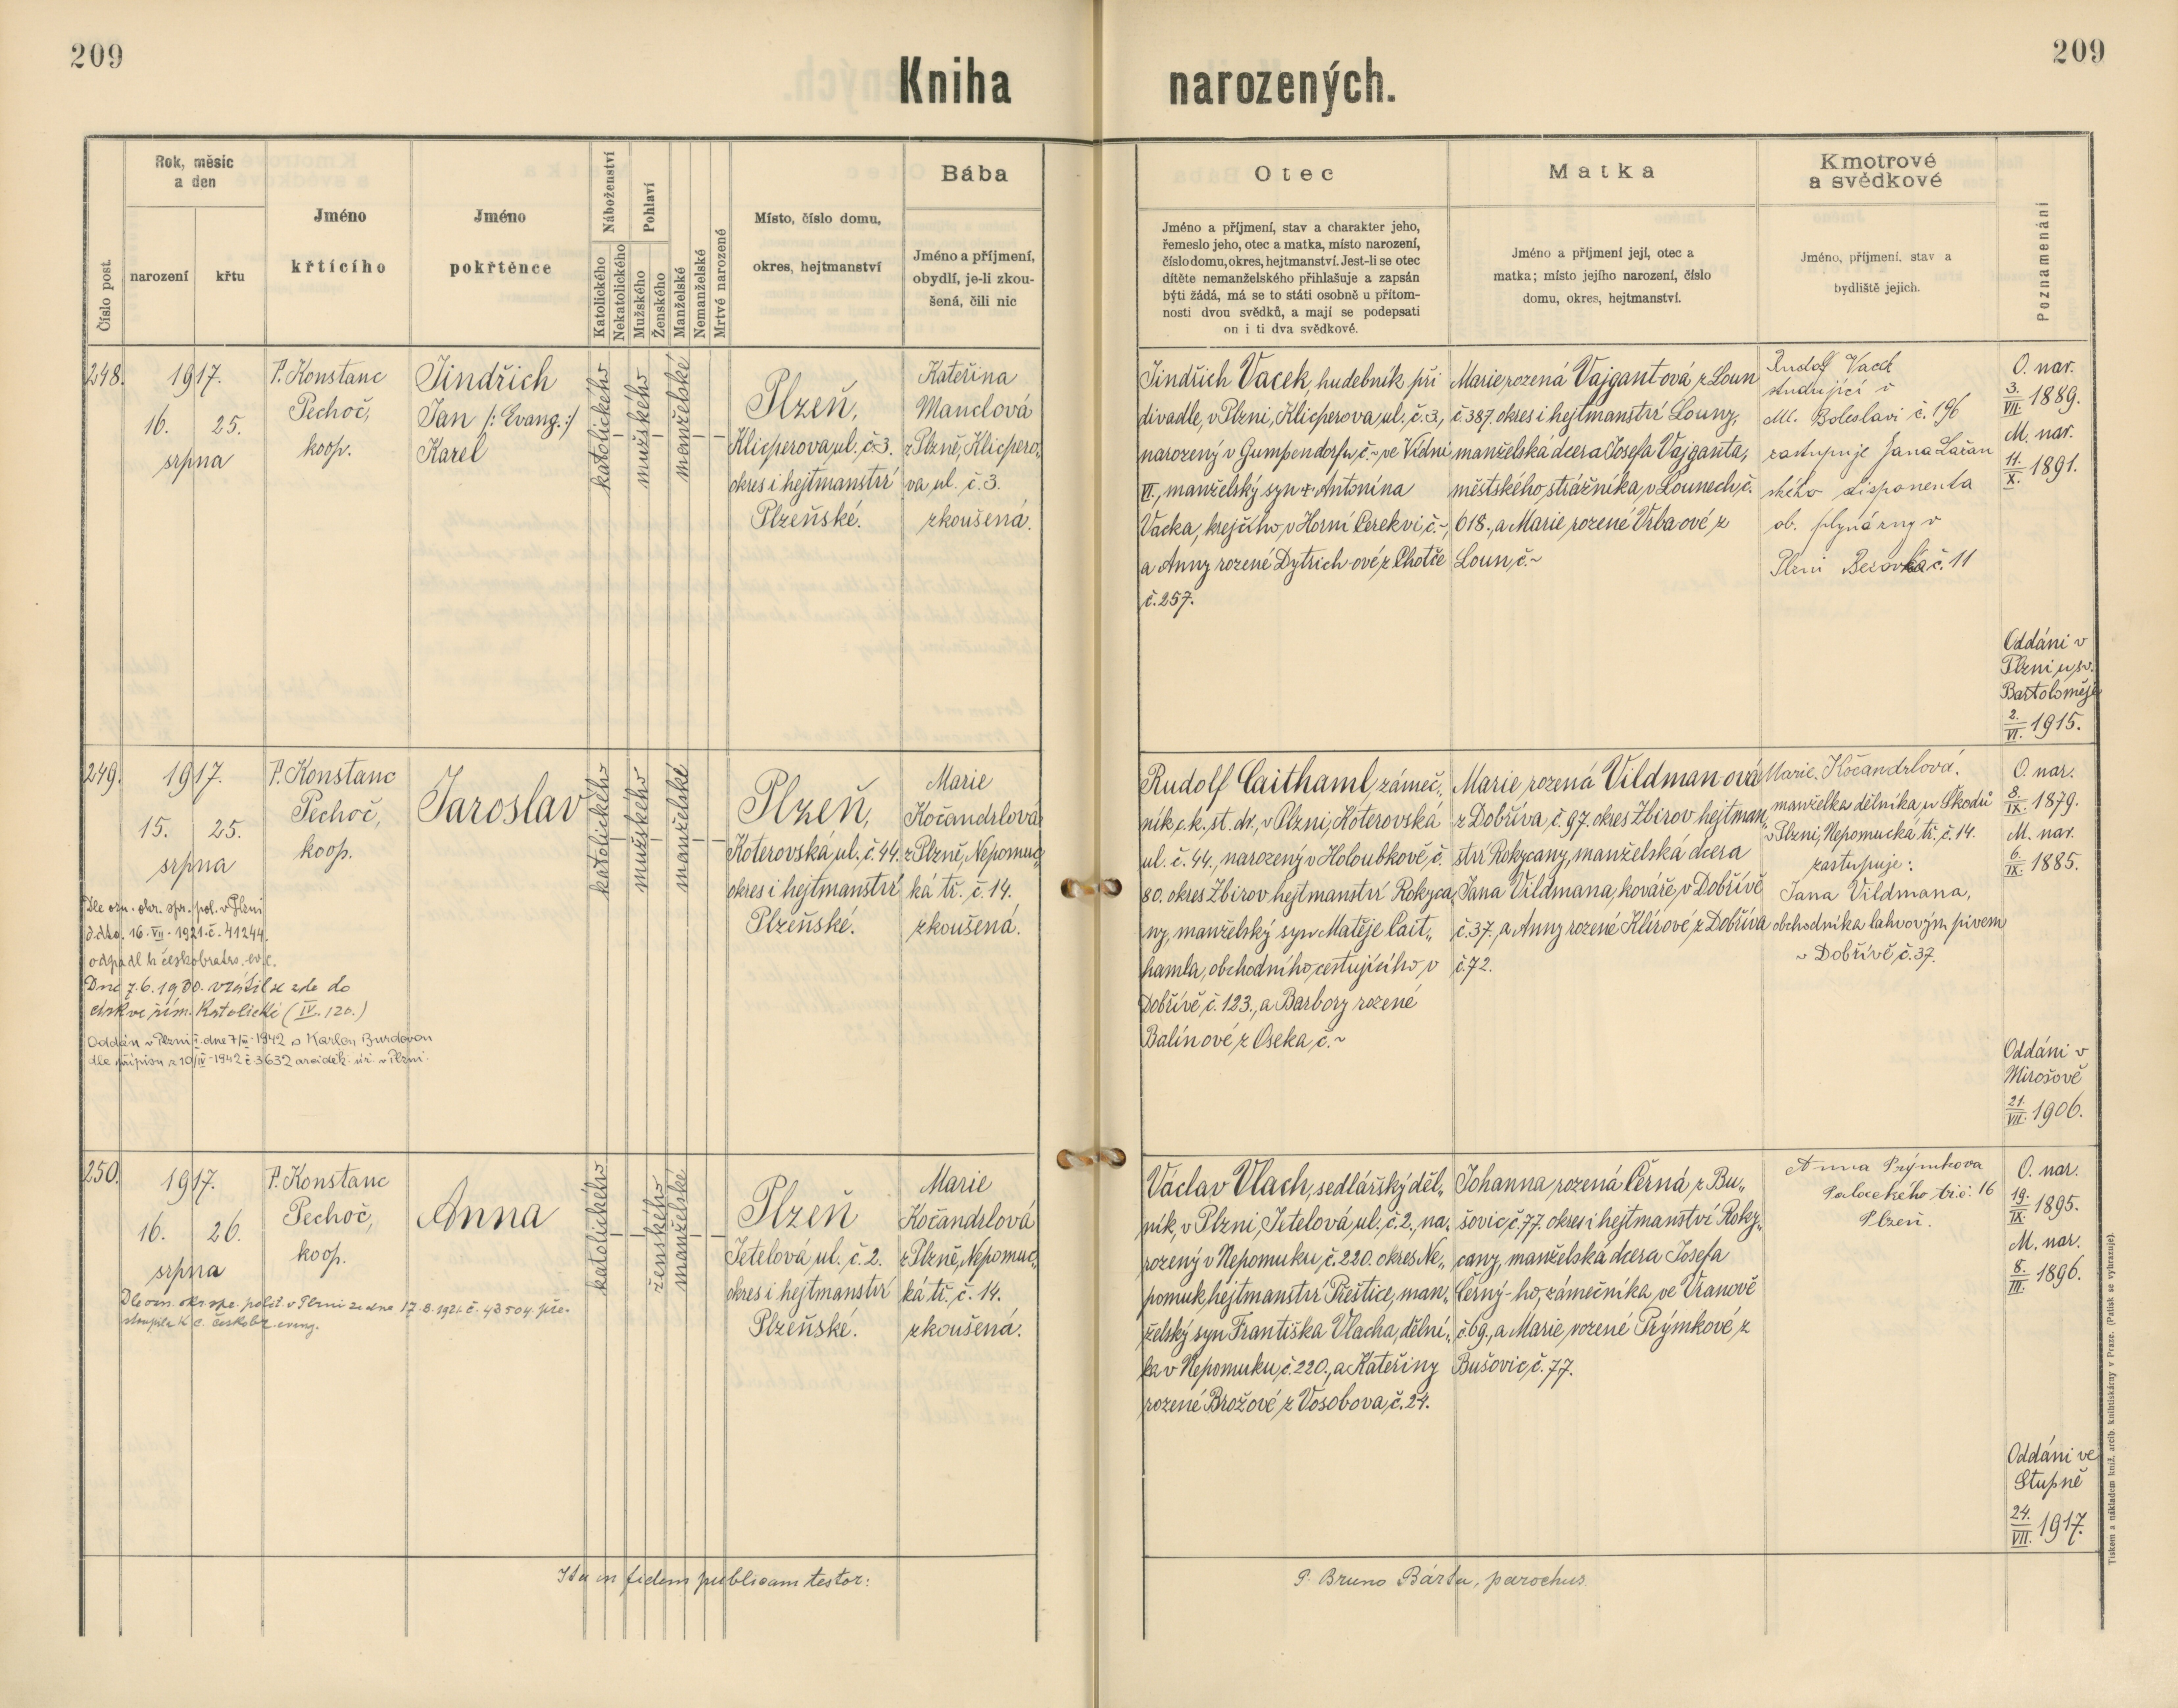 209
209
Kniha
narozených.
Číslo post.
Rok, měsíc
a den
narození
křtu
Jméno
křtícího
Jméno
pokřtěnce
Náboženství
Katolického
Nekatolického
Pohlaví
Mužského
Ženského
Manželské
Nemanželské
Mrtvé narozené
Místo, číslo domu,
okres, hejtmanství
Bába
Jméno a příjmení,
obydlí, je-li zkou-
šená, čili nic
Otec
Jméno a příjmení, stav a charakter jeho,
řemeslo jeho, otec a matka, místo narození,
číslo domu, okres, hejtmanství. Jest-li se otec
dítěte nemanželského přihlašuje a zapsán
býti žádá, má se to státi osobně u přítom-
nosti dvou svědků, a mají se podepsati
on i ti dva svědkové.
Matka
Jméno a příjmení její, otec a
matka; místo jejího narození, číslo
domu, okres, hejtmanství.
Kmotrové
a svědkové
Jméno, příjmení, stav a
bydliště jejich.
Poznamenání
248.
1917.
16. 25.
srpna
P. Konstanc
Pechoč,
koop.
Jindřich
Jan /: Evang. :/
Karel
katolického
–
mužského
–
manželské
– –
Plzeň,
Klicperova ul. č. 3.
okres i hejtmanství
Plzeňské.
Kateřina
Manclová
z Plzně, Klicpero-
va ul. č. 3.
zkoušená.
Jindřich Vacek, hudebník při
divadle, v Plzni, Klicperova ul. č. 3.,
narozený v Gumpendorfu, č. ~ ve Vídni
VI., manželský syn + Antonína
Vacka, krejčího, v Horní Cerekvi, č. ~,
a Anny rozené Dytrich-ové, z Chotče
č. 257.
Marie, rozená Vajgantová, z Loun
č. 387. okres i hejtmanství Louny,
manželská dcera Josefa Vajganta,
městského strážníka, v Lounech, č.
618., a Marie, rozené Vrba-ové z
Loun, č. ~
Rudolf Vacek
studující v
Ml. Boleslavi č. 196
zastupuje Jana Lažan
ského disponenta
ob. plynárny v
Plzni č. 11
O. nar.
3./VII. 1889.
M. nar.
11./X. 1891.
Oddáni v
Plzni u sv.
Bartoloměje
2./VI. 1915.
249.
1917.
15. 25.
srpna
Dle ozn. okr. spr. pol. v Plzni
ddto. 16. VII. 1921. č. 41244.
odpadl k českobratrs. ev. c.
Dne 7. 6. 1930. vrátil se zde do
církve řím. katolické (IV. 120.)
Oddán v Plzni dne 1942 s Karlou Burdovou
dle přípisu z 10/IV 1942 č 3632 arciděk. úř. v Plzni.
P. Konstanc
Pechoč,
koop.
Jaroslav
katolického
–
mužského
–
manželské
– –
Plzeň,
Koterovská, ul. č. 44.
okres i hejtmanství
Plzeňské.
Marie
Kočandrlová
z Plzně, Nepomuc„
ká tř. č. 14.
zkoušená.
Rudolf Caithaml, zámeč„
ník, c. k. st. dr., v Plzni, Koterovská
ul. č. 44., narozený v Holoubkově, č.
80. okres Zbirov hejtmanství Rokyca„
ny, manželský syn Matěje Cait„
hamla, obchodního cestujícího v
Dobřívě, č. 123., a Barbory rozené
Balínové z Oseka, č. ~
Marie rozená Vildman-ová
z Dobříva, č. 97. okres Zbirov hejtman„
ství Rokycany, manželská dcera
Jana Vildmana, kováře, v Dobřívě
č. 37., a Anny rozené Klírové, z Dobříva
č. 72.
Marie Kočandrlová.
manželka dělníka, u Škodů
v Plzni, Nepomucká tř. č. 14.
zastupuje:
Jana Vildmana,
obchodníka lahvovým pivem
v Dobřívě, č. 37.
O. nar.
8./IX. 1879.
M. nar.
6./IX. 1885.
Oddáni v
Mirošově
21./VII. 1906.
250.
1917.
16. 26.
srpna
Dle ozn. okr. spr. polit. v Plzni ze dne 17. 8. 1921. č. 43504. pře-
stoupila k c. českobr. evang.
P. Konstanc
Pechoč,
koop.
Anna
katolického
–
–
ženského
manželské
– –
Plzeň
Jetelová ul. č. 2.
okres i hejtmanství
Plzeňské.
Marie
Kočandrlová
z Plzně, Nepomuc„
ká tř. č. 14.
zkoušená.
Václav Vlach, sedlářský děl„
ník, v Plzni, Jetelová, ul. č. 2., na„
rozený v Nepomuku č. 220. okres Ne„
pomuk, hejtmanství Přeštice, man„
želský syn Františka Vlacha, dělní„
ka v Nepomuku, č. 220., a Kateřiny
rozené Brožové z Vosobova, č. 24.
Johanna, rozená Černá, z Bu„
šovic, č. 77. okres i hejtmanství Roky„
cany, manželská dcera Josefa
Černý-ho, zámečníka, ve Vranově
č. 69., a Marie, rozené Prýmkové, z
Bušovic, č. 77.
Anna Prýmkova
Palackého tř. č. 16
Plzeň.
O. nar.
19./IX. 1895.
M. nar.
8./III. 1896.
Oddáni ve
Stupně
24./VII. 1917.
Ita in fidem publicam testor:
P. Bruno Bárta, parochus.
Tiskem a nákladem kníž. arcib. knihtiskárny v Praze. (Patisk se vyhrazuje).